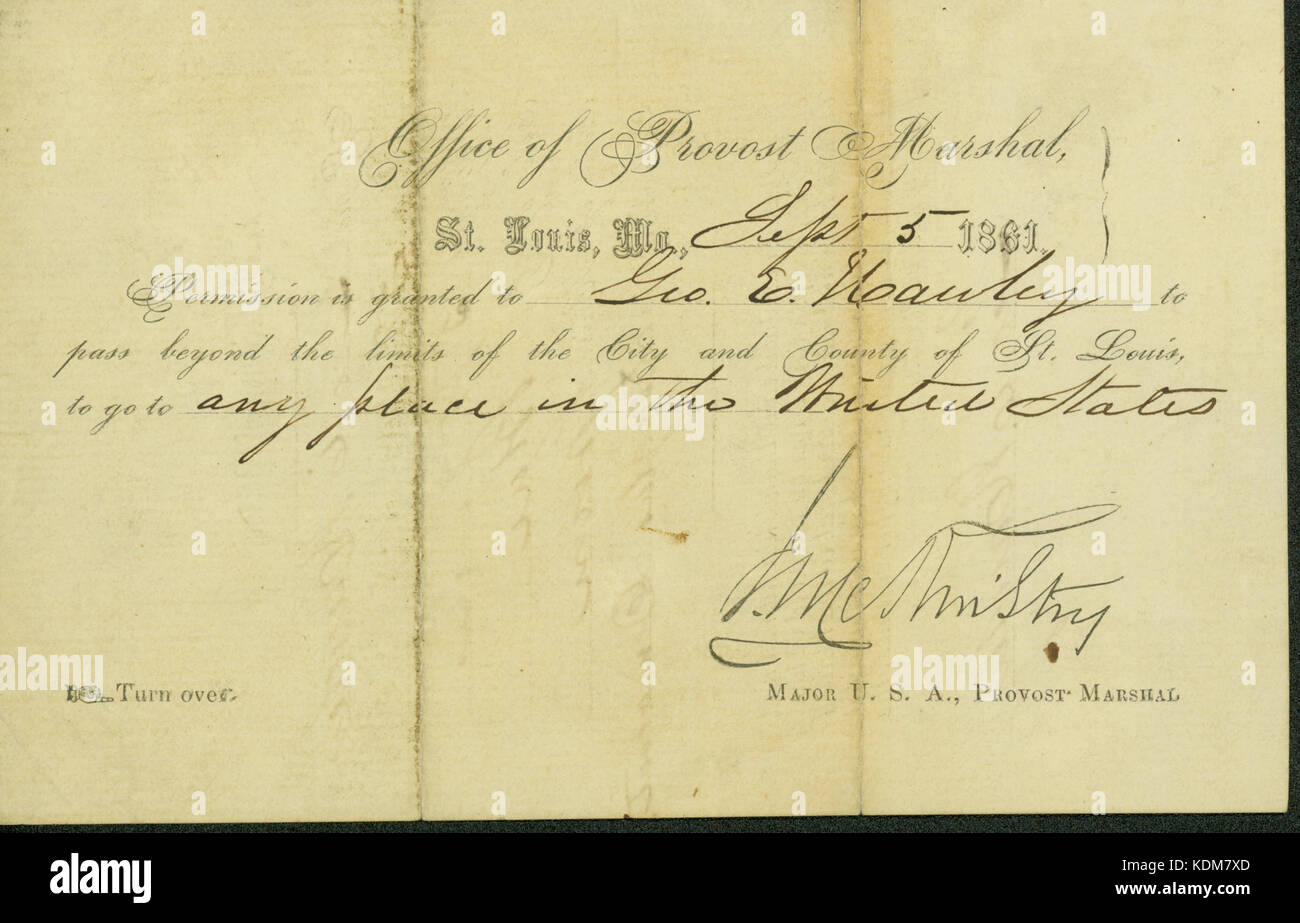 Office of Provost Marshal,
St. Louis, Mo., Sept 5 1861.
Permission is granted to Geo. E. Hawley to
pass beyond the limits of the City and County of St. Louis,
to go to any place in the United States
J. McKinstry
Turn over.
MAJOR U. S. A., PROVOST MARSHAL
a alamy
Image ID: KDM7XD
www.alamy.com